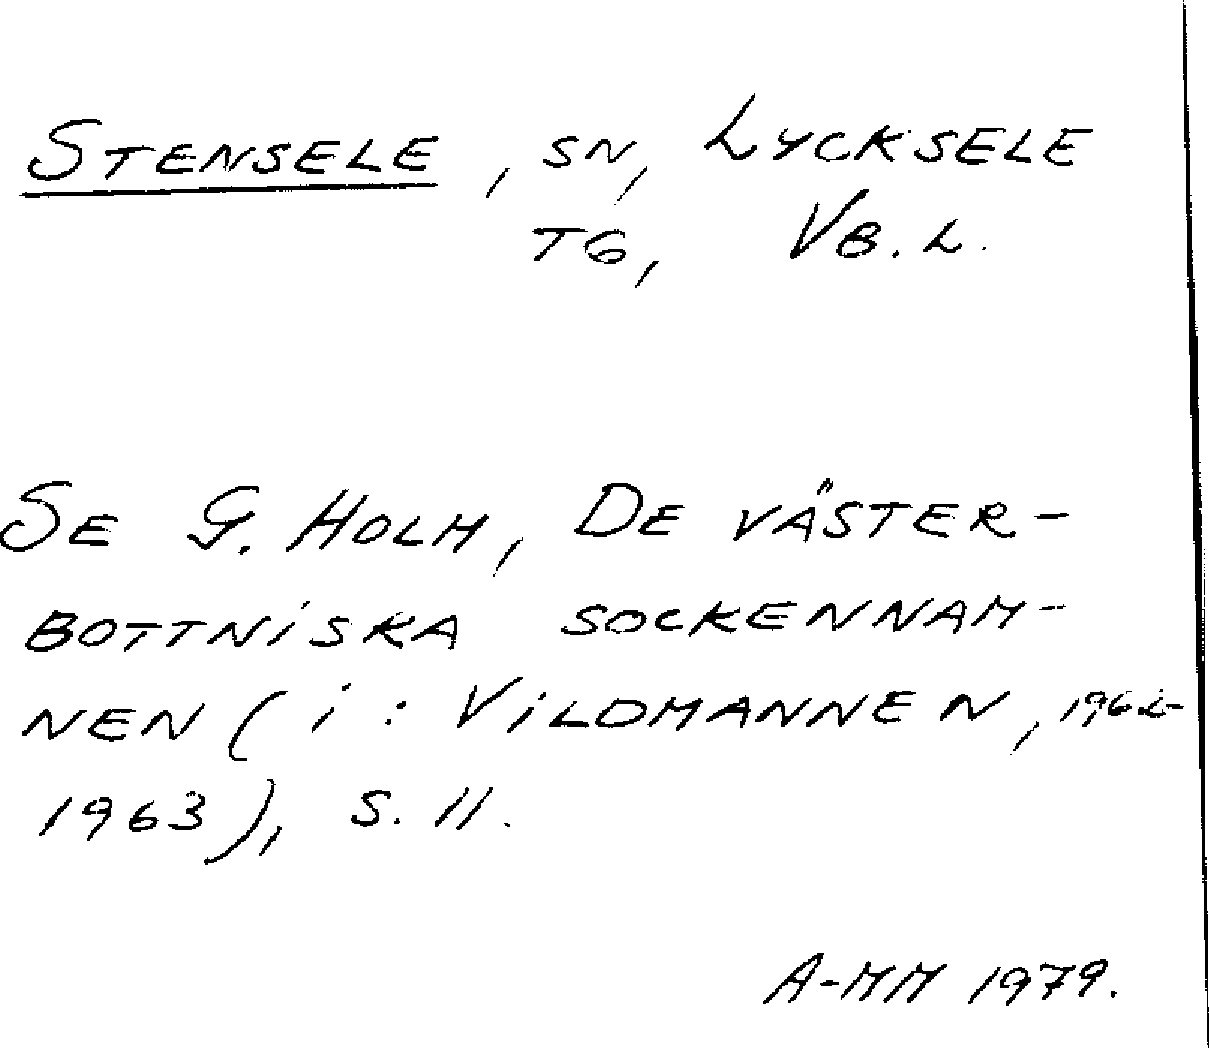 STENSELE, SN, LYCKSELE
TG, VB. L.
SE G. HOLM, DE VÄSTER-
BOTTNiSKA SOCKENNAM-
NEN (i: ViLDMANNEN, 1962-
1963), S. 11.
A-MM 1979.